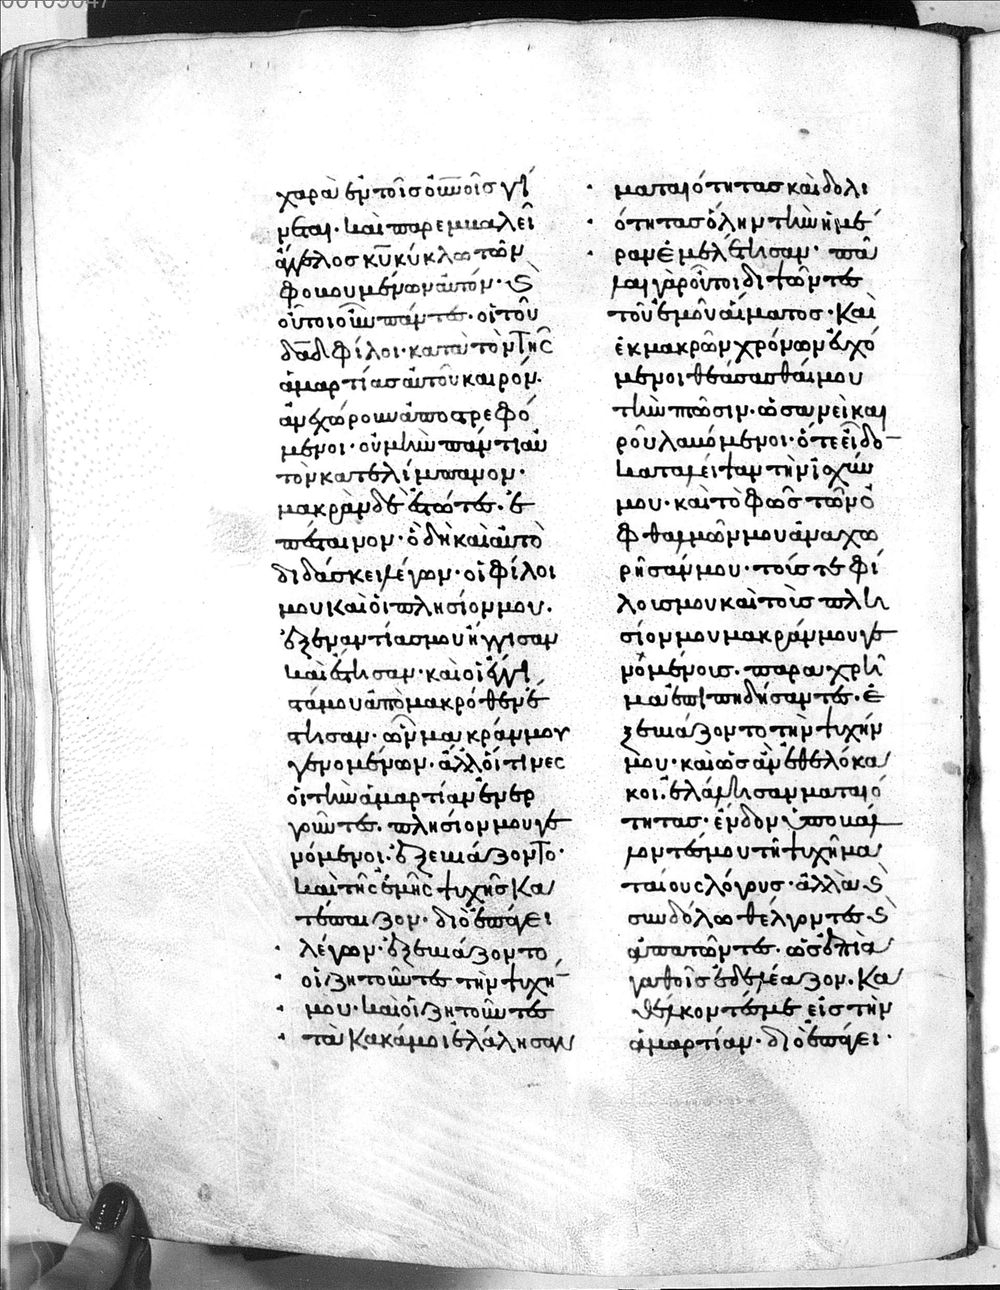 χαρὰ ἐν τοῖς οὐνοῖς γί
νεται· καὶ παρεμβαλεῖ
ἄγγελος κῡ κύκλω τῶν
φοβουμένων αὐτόν· καὶ
οὗτοι οὖν πάντες· οἱ τοῦ
δᾱδ φίλοι· κατὰ τὸν τῆς
ἁμαρτίας αὐτοῦ καιρόν·
ἀνεχώρουν ἀποστρεφό
μενοι· οὐ μὴν παντὶ αὐ
τὸν κατελίμπανον·
μακρὰν δὲ ἑστῶτες· ἐ
πέταινον· ὁ δὴ καὶ αὐτὸ
διδάσκει λέγων· οἱ φίλοι
μου καὶ οἱ πλησίον μου·
ἐξεναντίας μου ἤγγισαν
καὶ ἔστησαν· καὶ οἱ ἔγγι
στά μου ἀπὸ μακρόθεν ἔ
στησαν· ὧν μακράν μου
γενομένων· ἄλλοι τινες
οἱ τὴν ἁμαρτίαν ἐνερ
γοῦντες· πλησίον μου γε
νόμενοι· ἐξεβιάζοντο·
καὶ τῆς ἐμῆς ψυχῆς κα
τέπαιζον· διὸ ἐπάγει
λέγων· ἐξεβιάζοντο
οἱ ζητοῦντες τὴν ψυχή
μου· καὶ οἱ ζητοῦντες
τὰ κακά μοι ἐλάλησαν
ματαιότητας καὶ δολι
ότητας ὅλην τὴν ἡμέ
ραν ἐμελέτησαν· πά
λαι γὰρ οὗτοι διψῶντες
τοῦ ἐμοῦ αἵματος· καὶ
ἐκ μακρῶν χρόνων εὐχό
μενοι θεάσασθαί μου
τὴν πτῶσιν· ὡσανεὶ και
ροῦ λαβόμενοι· ὅτε εἶδο
καταλείψαν τὴν ἰσχύν
μου· καὶ τὸ φῶς τῶν ὀ
φθαλμῶν μου ἀναχω
ρῆσάν μου· τούς τε φί
λους μου καὶ τοὺς πλη
σίον μου μακράν μου γε
νομένους· παραυχρῆ
μα ἐπιπηδήσαντες· ἐ
ξεβιάζοντο τὴν ψυχήν
μου· καὶ ὡς ἀνεθελόκα
κοι· ἐλάλησαν ματαιό
τητας· ἔνδον ὑποβάλ
λοντές μου τῆ ψυχῆ μα
ταίους λόγους· ἀλλὰ καὶ
συνδόλω θέλγοντες· καὶ
ἀπατῶντες· ὡς ἐπὶ ἀ
γαθοῖς ἐδελέαζον· κα
θέλκοντές με εἰς τὴν
ἁμαρτίαν· διὸ ἐπάγει·